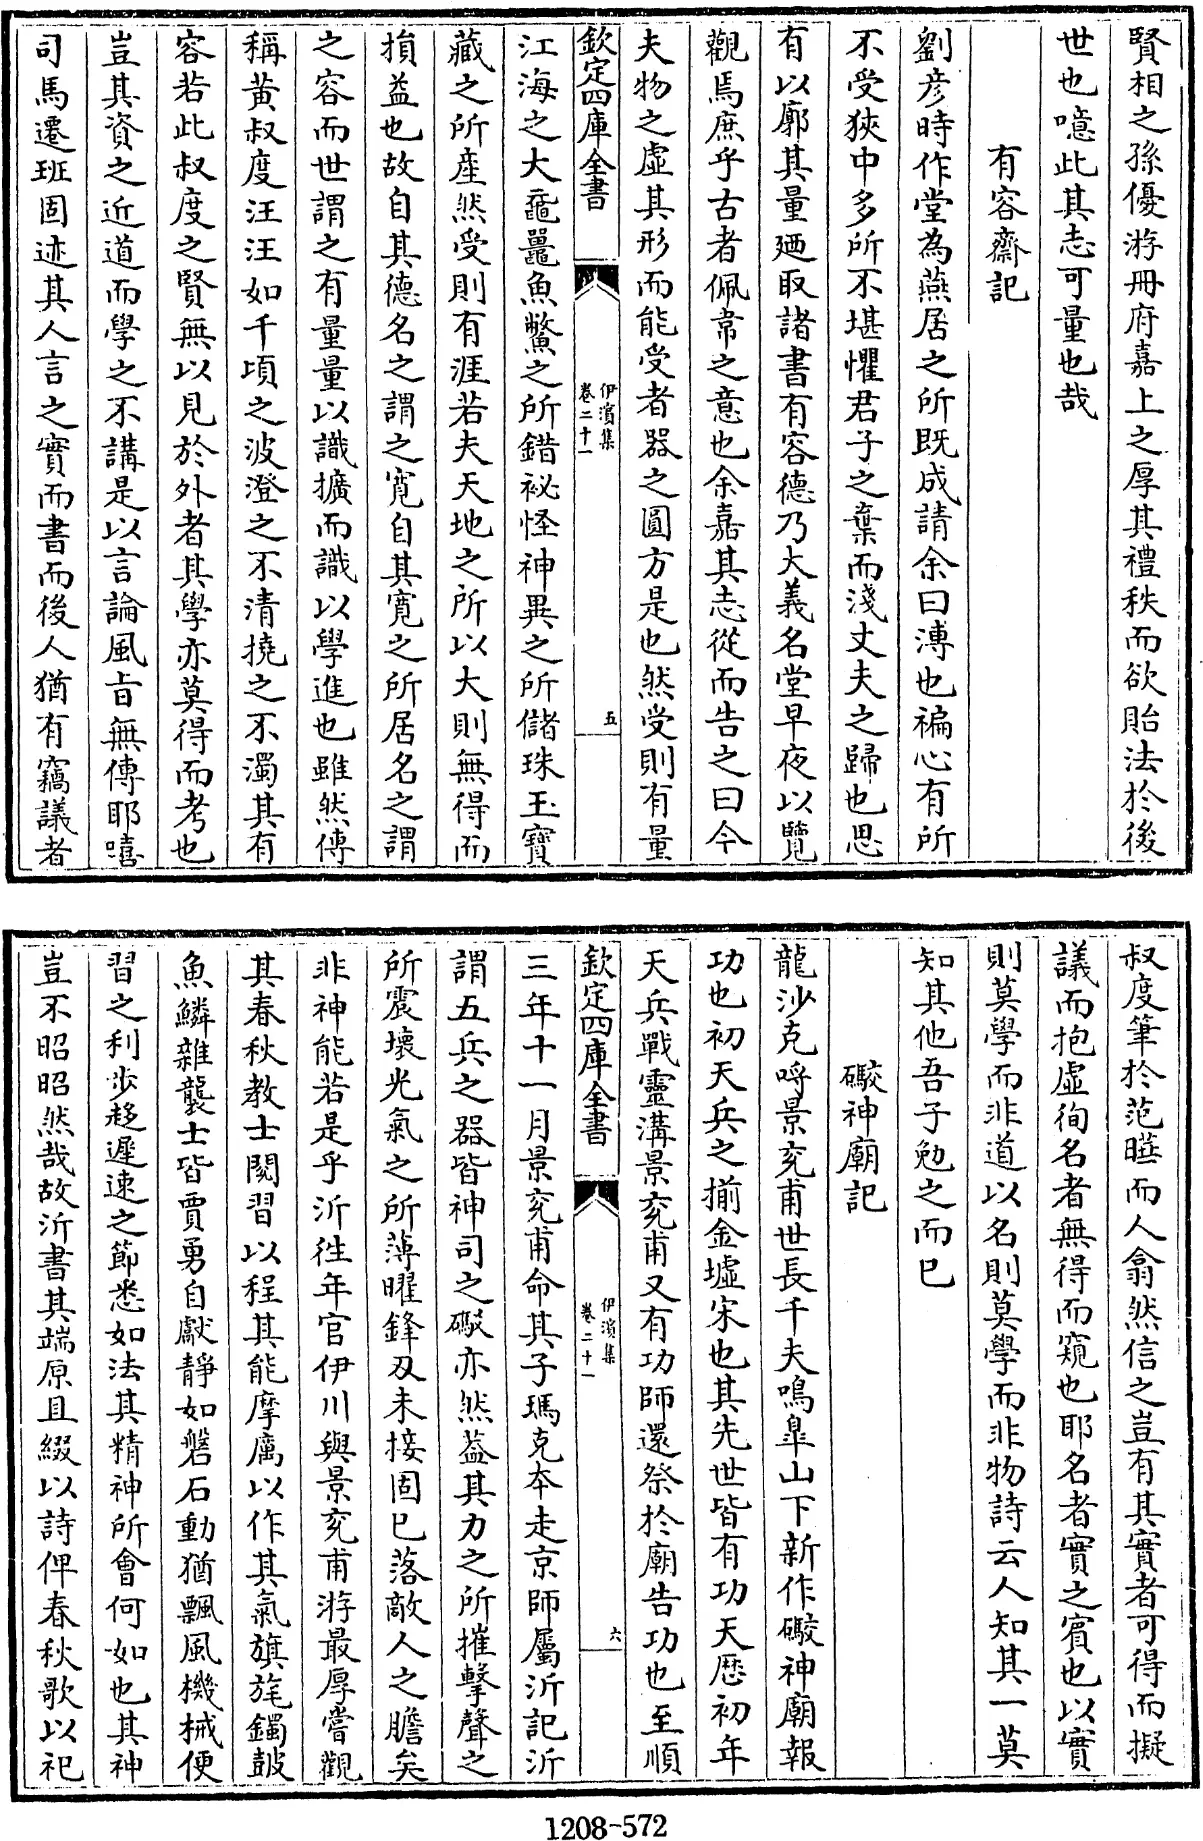 賢相之孫優游冊府嘉上之厚其禮秩而欲貽法於後
世也噫此其志可量也哉
有容齋記
劉彦時作堂為燕居之所既成請余曰溥也褊心有所
不受狹中多所不堪懼君子之棄而淺丈夫之歸也思
有以廓其量廼取諸書有容德乃大義名堂早夜以覽
觀焉庶乎古者佩韋之意也余嘉其志從而告之曰今
夫物之虛其形而能受者器之圓方是也然受則有量
欽定四庫全書
伊濱集
卷二十一
五
江海之大黿鼉魚鱉之所錯祕怪神異之所儲珠玉寶
藏之所産然受則有涯若夫天地之所以大則無得而
損益也故自其德名之謂之寛自其寛之所居名之謂
之容而世謂之有量量以識擴而識以學進也雖然傳
稱黄叔度汪汪如千頃之波澄之不清撓之不濁其有
容若此叔度之賢無以見於外者其學亦莫得而考也
豈其資之近道而學之不講是以言論風旨無傳耶嘻
司馬遷班固迹其人言之實而書而後人猶有竊議者
叔度筆於范曄而人翕然信之豈有其實者可得而擬
議而抱虛徇名者無得而窺也耶名者實之賓也以實
則莫學而非道以名則莫學而非物詩云人知其一莫
知其他吾子勉之而已
礮神廟記
龍沙克哷景兖甫世長千夫鳴臯山下新作礮神廟報
功也初天兵之揃金墟宋也其先世皆有功天厯初年
天兵戰靈溝景兖甫又有功師還祭於廟告功也至順
欽定四庫全書
伊濱集
卷二十一
六
三年十一月景兖甫命其子瑪克本走京師屬沂記沂
謂五兵之器皆神司之礮亦然葢其力之所摧擊聲之
所震壞光氣之所薄曜鋒刃未接固已落敵人之膽矣
非神能若是乎沂往年官伊川與景兖甫游最厚嘗觀
其春秋教士閱習以程其能摩厲以作其氣旗旄鐲鼓
魚鱗雜襲士皆賈勇自獻靜如磐石動猶飄風機械便
習之利步移遲速之節悉如法其精神所會何如也其神
豈不昭昭然哉故沂書其端原且綴以詩俾春秋歌以祀
1208-572